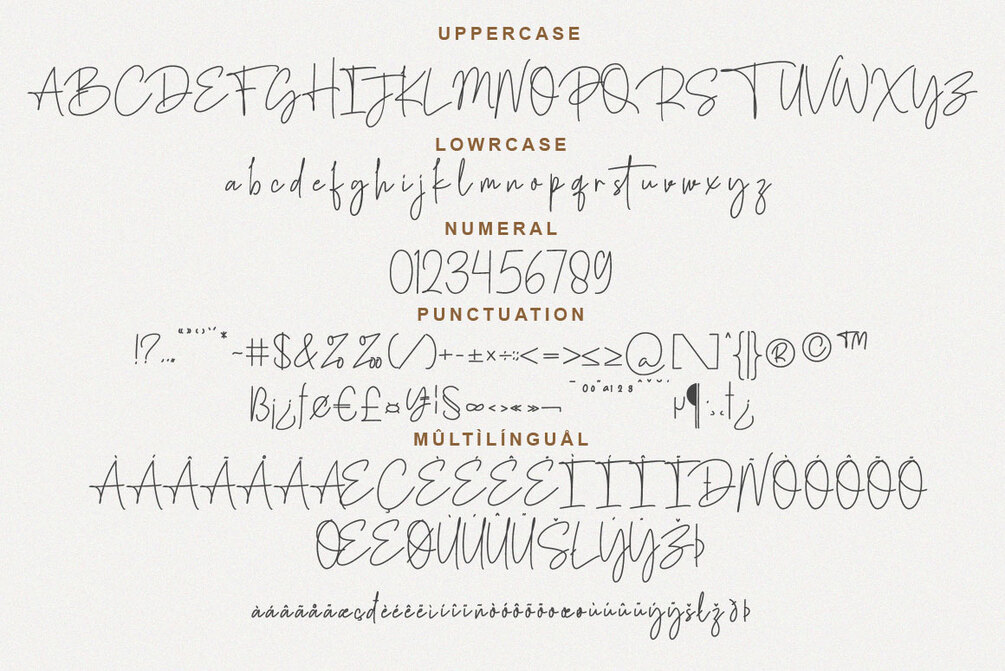 UPPERCASE
ABCDEFGHIJKLMNOPQRSTUVWXYZ
LOWRCASE
abcdefghijklmnopqrstuvwxyz
NUMERAL
0123456789
PUNCTUATION
!?.,.. «»‹›*~#$&%‰()+-±×÷:;<=>≤≥@[\]^{|}®©™
ß¡¿ƒ¢€£¤¥¦§∞<>«»¬ µ¶·¸†¿
MÛLTÌLÍNGUÅL
ÀÁÂÃÅÄÆÇÈÉÊËÌÍÎÏÐÑÒÓÔÕÖ
ŒEØÙÚÛÜŠŁÝŸŽÞ
àáâãåäæçđèéêëìíîïñòóôõöœøùúûüýÿšłžðþ